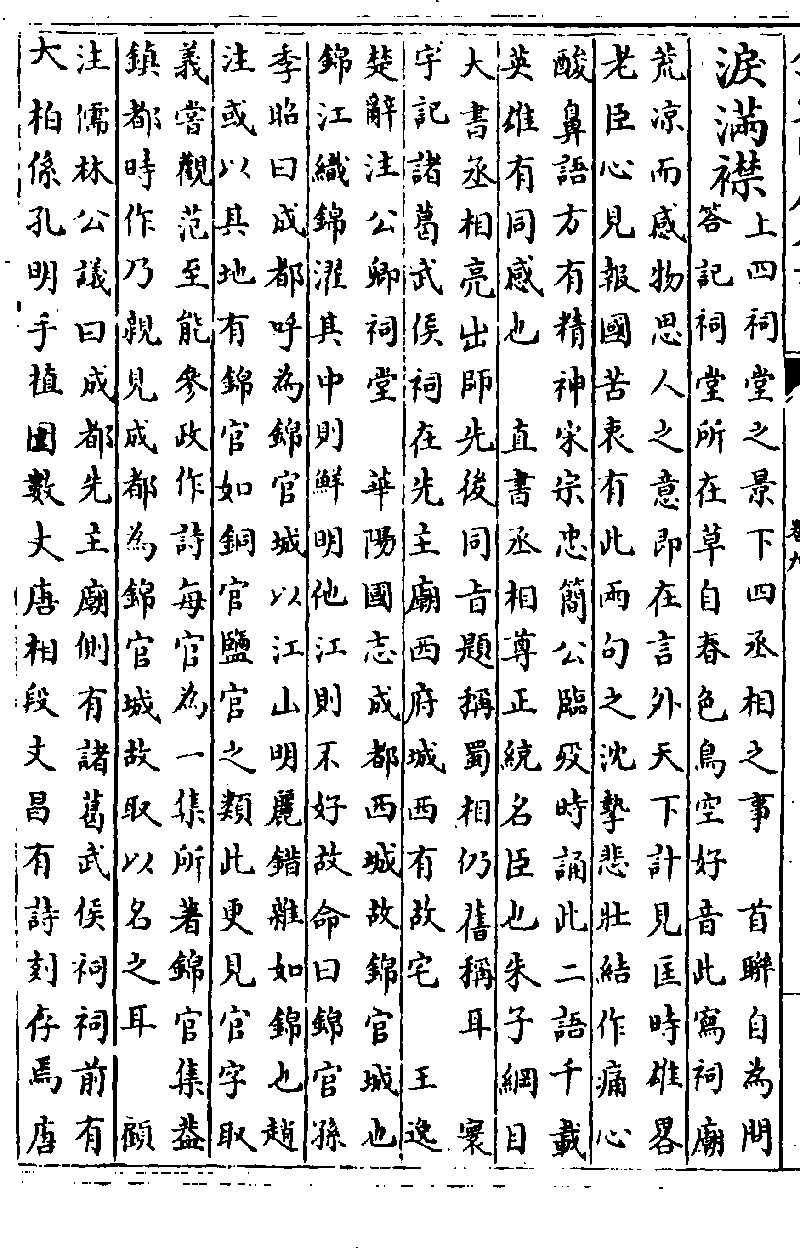 淚滿襟
上四祠堂之景下四丞相之事　首聯自為問
答記祠堂所在草自春色鳥空好音此寫祠廟
荒凉而感物思人之意即在言外天下計見匡時雄畧
老臣心見報國苦衷有此兩句之沈摯悲壯結作痛心
酸鼻語方有精神宋宗忠簡公臨歿時誦此二語千載
英雄有同感也　直書丞相尊正統名臣也朱子綱目
大書丞相亮出師先後同旨題稱蜀相仍舊稱耳　寰
宇記諸葛武侯祠在先主廟西府城西有故宅　王逸
楚辭注公卿祠堂　華陽國志成都西城故錦官城也
錦江織錦濯其中則鮮明他江則不好故命曰錦官孫
季昭曰成都呼為錦官城以江山明麗錯雜如錦也趙
注或以其地有錦官如銅官鹽官之類此更見官字取
義嘗觀范至能參政作詩每官為一集所著錦官集葢
鎮都時作乃親見成都為錦官城故取以名之耳　顧
注儒林公議曰成都先主廟側有諸葛武侯祠祠前有
大柏係孔明手植圍數丈唐相段文昌有詩刻存焉唐